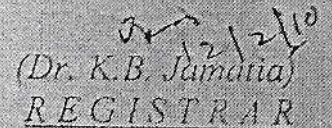 12/2/10
(Dr. K.B. Jamatia)
REGISTRAR